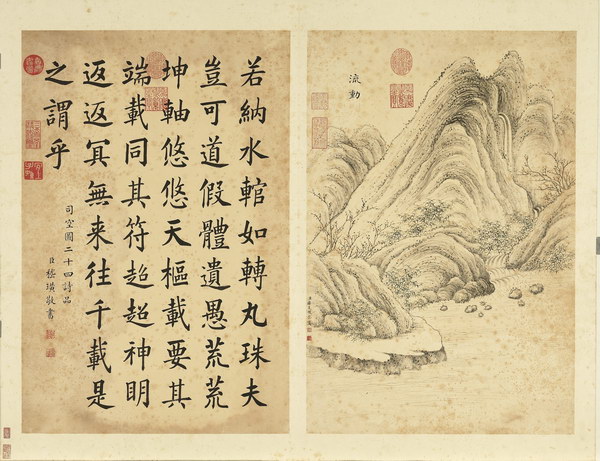 流動
若納水輨如轉丸珠夫
豈可道假體遺愚荒荒
坤軸悠悠天樞載要其
端載同其符超超神明
返返冥無来往千載是
之謂乎
司空圖二十四詩品
臣嵇璜敬書